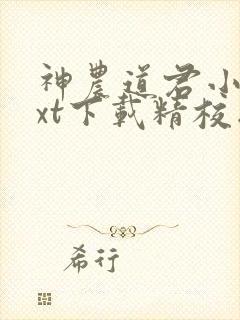 神農道君小
xt下載精校
希行